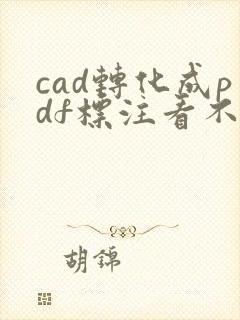 cad轉化成p
df標注看不
胡錦